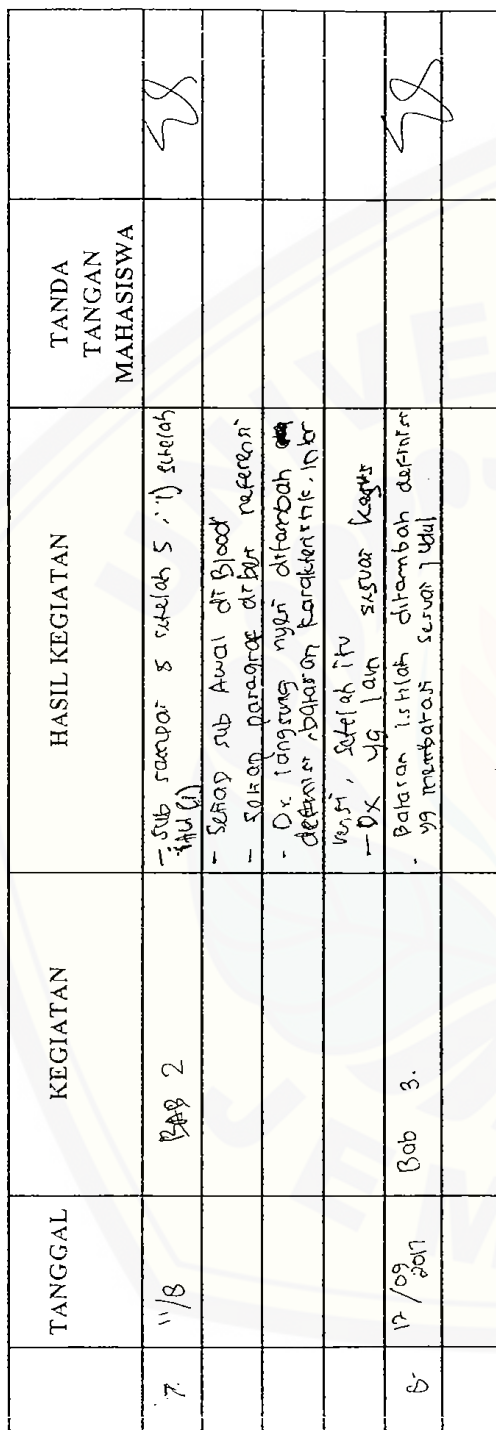 TANGGAL
KEGIATAN
HASIL KEGIATAN
TANDA
TANGAN
MAHASISWA
7.
11/8
BAB 2
- Sub sampai 5 setelah 5, 1) setelah
itu (1)
- Setiap sub Awal di Blood
- Setiap paragraf diberi referensi
- Dx langsung nyeri ditambah
definisi, batasan karakteristik, inter
vensi, setelah itu
- Dx yg lain sesuai kasus
8.
17/09
2017
Bab 3.
- Batasan istilah ditambah definisi
yg membatasi sesuai judul